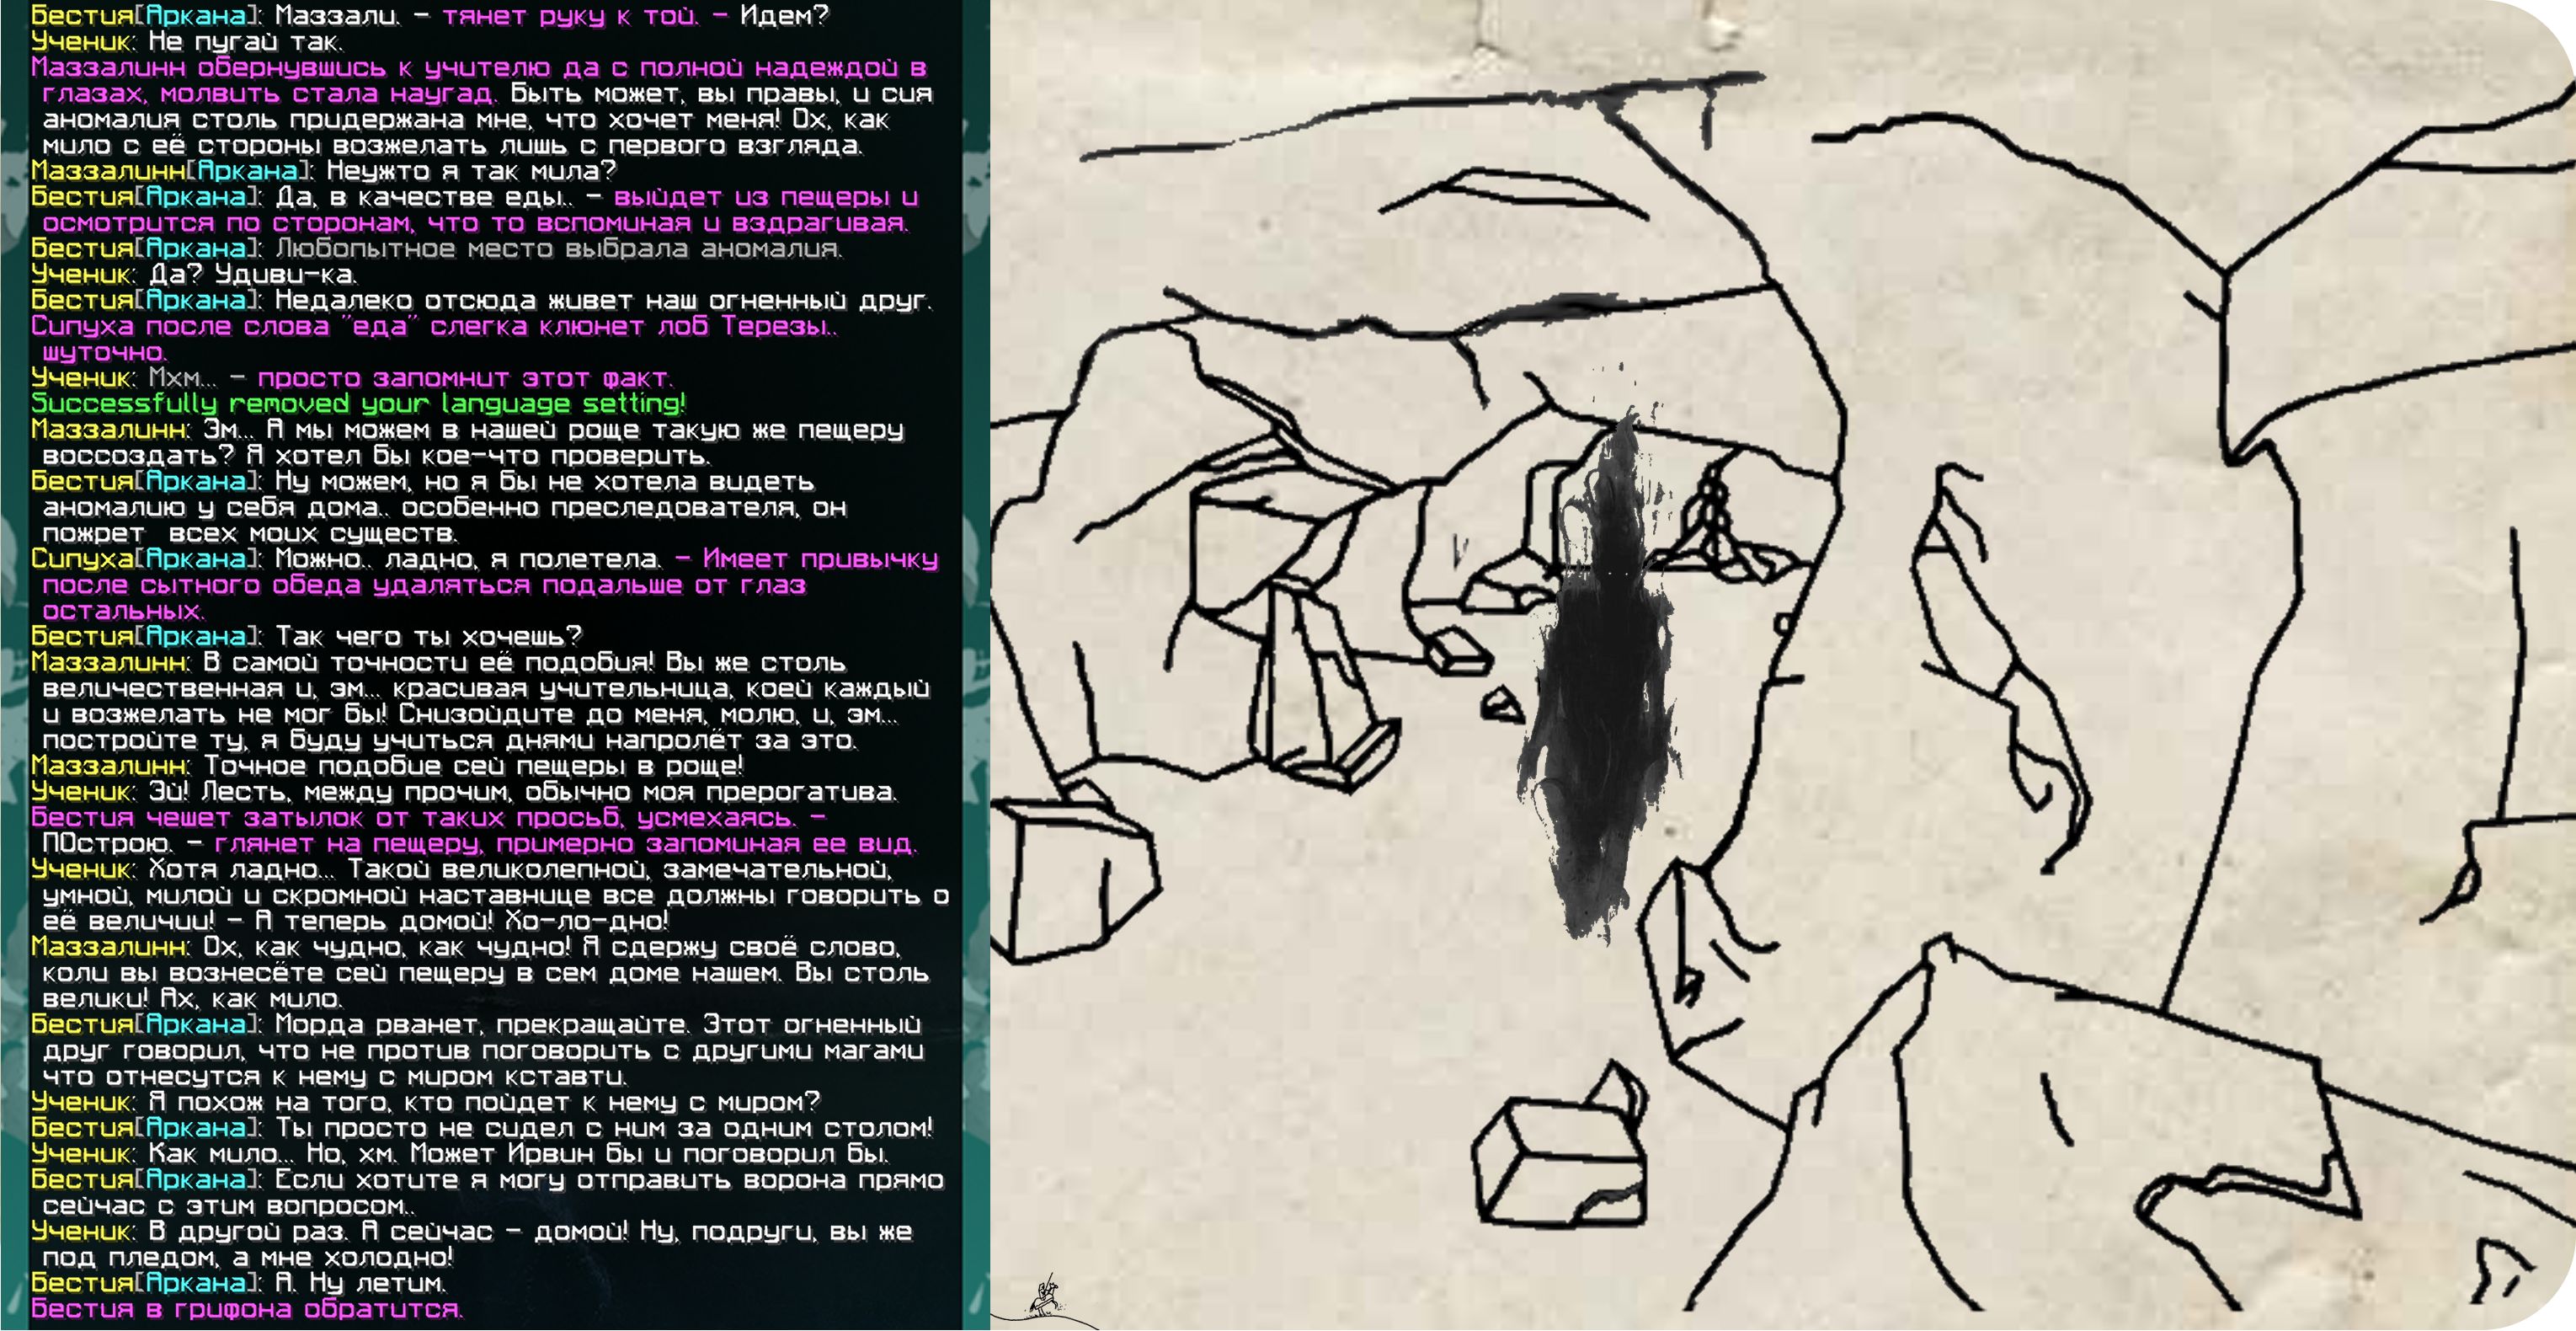 Бестия[Аркана]: Маззали. – тянет руку к той. – Идем?
Ученик: Не пугай так.
Маззалинн обернувшись к учителю да с полной надеждой в
глазах, молвить стала наугад. Быть может, вы правы, и сия
аномалия столь придержана мне, что хочет меня! Ох, как
мило с её стороны возжелать лишь с первого взгляда.
Маззалинн[Аркана]: Неужто я так мила?
Бестия[Аркана]: Да, в качестве еды.. – выйдет из пещеры и
осмотрится по сторонам, что то вспоминая и вздрагивая.
Бестия[Аркана]: Любопытное место выбрала аномалия.
Ученик: Да? Удиви-ка.
Бестия[Аркана]: Недалеко отсюда живет наш огненный друг.
Сипуха после слова "еда" слегка клюнет лоб Терезы..
шуточно.
Ученик: Мхм... – просто запомнит этот факт.
Successfully removed your language setting!
Маззалинн: Эм... А мы можем в нашей роще такую же пещеру
воссоздать? Я хотел бы кое-что проверить.
Бестия[Аркана]: Ну можем, но я бы не хотела видеть
аномалию у себя дома.. особенно преследователя, он
пожрет  всех моих существ.
Сипуха[Аркана]: Можно.. ладно, я полетела. – Имеет привычку
после сытного обеда удаляться подальше от глаз
остальных.
Бестия[Аркана]: Так чего ты хочешь?
Маззалинн: В самой точности её подобия! Вы же столь
величественная и, эм... красивая учительница, коей каждый
и возжелать не мог бы! Снизойдите до меня, молю, и, эм...
постройте ту, я буду учиться днями напролёт за это.
Маззалинн: Точное подобие сей пещеры в роще!
Ученик: Эй! Лесть, между прочим, обычно моя прерогатива.
Бестия чешет затылок от таких просьб, усмехаясь. –
ПОстрою. – глянет на пещеру, примерно запоминая ее вид.
Ученик: Хотя ладно... Такой великолепной, замечательной,
умной, милой и скромной наставнице все должны говорить о
её величии! – А теперь домой! Хо-ло-дно!
Маззалинн: Ох, как чудно, как чудно! Я сдержу своё слово,
коли вы вознесёте сей пещеру в сем доме нашем. Вы столь
велики! Ах, как мило.
Бестия[Аркана]: Морда рванет, прекращайте. Этот огненный
друг говорил, что не против поговорить с другими магами
что отнесутся к нему с миром кставти.
Ученик: Я похож на того, кто пойдет к нему с миром?
Бестия[Аркана]: Ты просто не сидел с ним за одним столом!
Ученик: Как мило... Но, хм. Может Ирвин бы и поговорил бы.
Бестия[Аркана]: Если хотите я могу отправить ворона прямо
сейчас с этим вопросом..
Ученик: В другой раз. А сейчас – домой! Ну, подруги, вы же
под пледом, а мне холодно!
Бестия[Аркана]: А. Ну летим.
Бестия в грифона обратится.